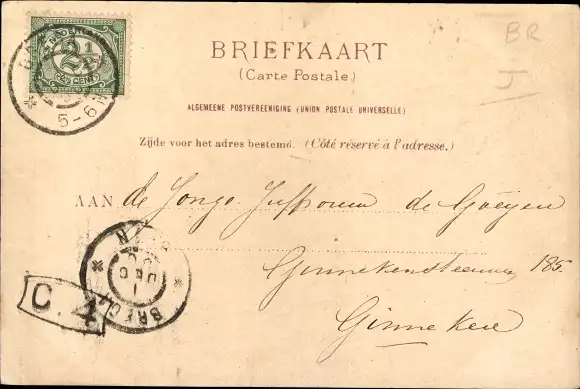 NEDERLAND
2½
CENT
5-6N
BR
J
BRIEFKAART
(Carte Postale.)
ALGEMEENE POSTVEREENIGING (UNION POSTALE UNIVERSELLE)
Zijde voor het adres bestemd. (Côté réservé à l'adresse.)
AAN de Jonge Juffrouw de Gr
185.
Ginneken
BREDA
1 DEC
C. 4